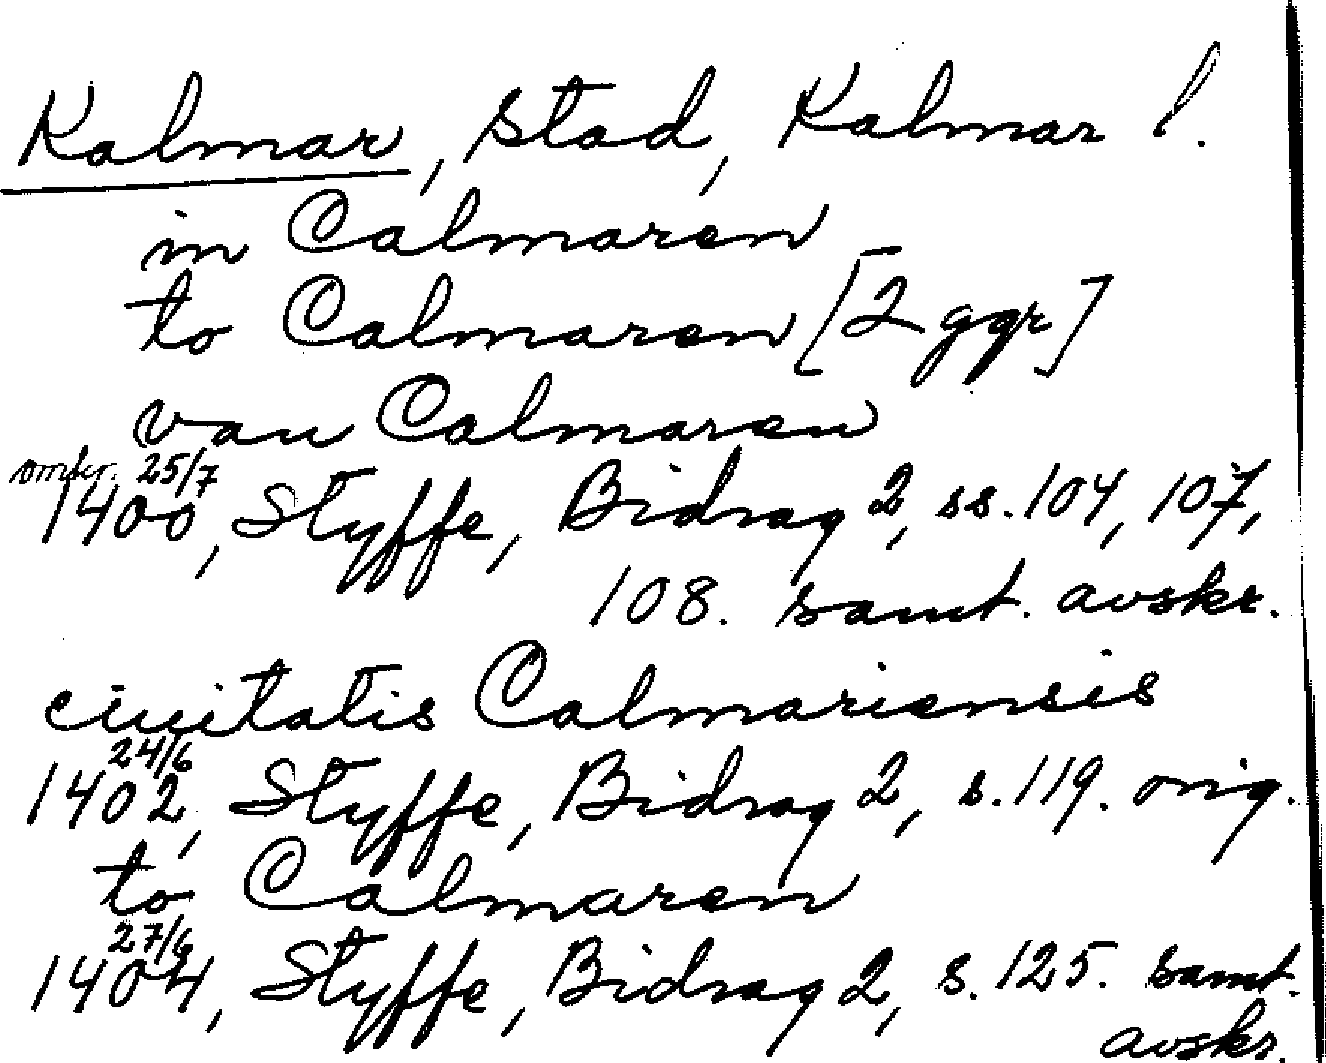 Kalmar, stad, Kalmar l.
in Calmaren
to Calmaren [2 ggr]
van Calmaren
omkr. 25/7
1400, Styffe, Bidrag 2, ss. 104, 107,
108. samt. avskr.
ciuitatis Calmariensis
24/6
1402, Styffe, Bidrag 2, s. 119. orig.
to Calmaren
27/6
1404, Styffe, Bidrag 2, s. 125. samt.
avskr.